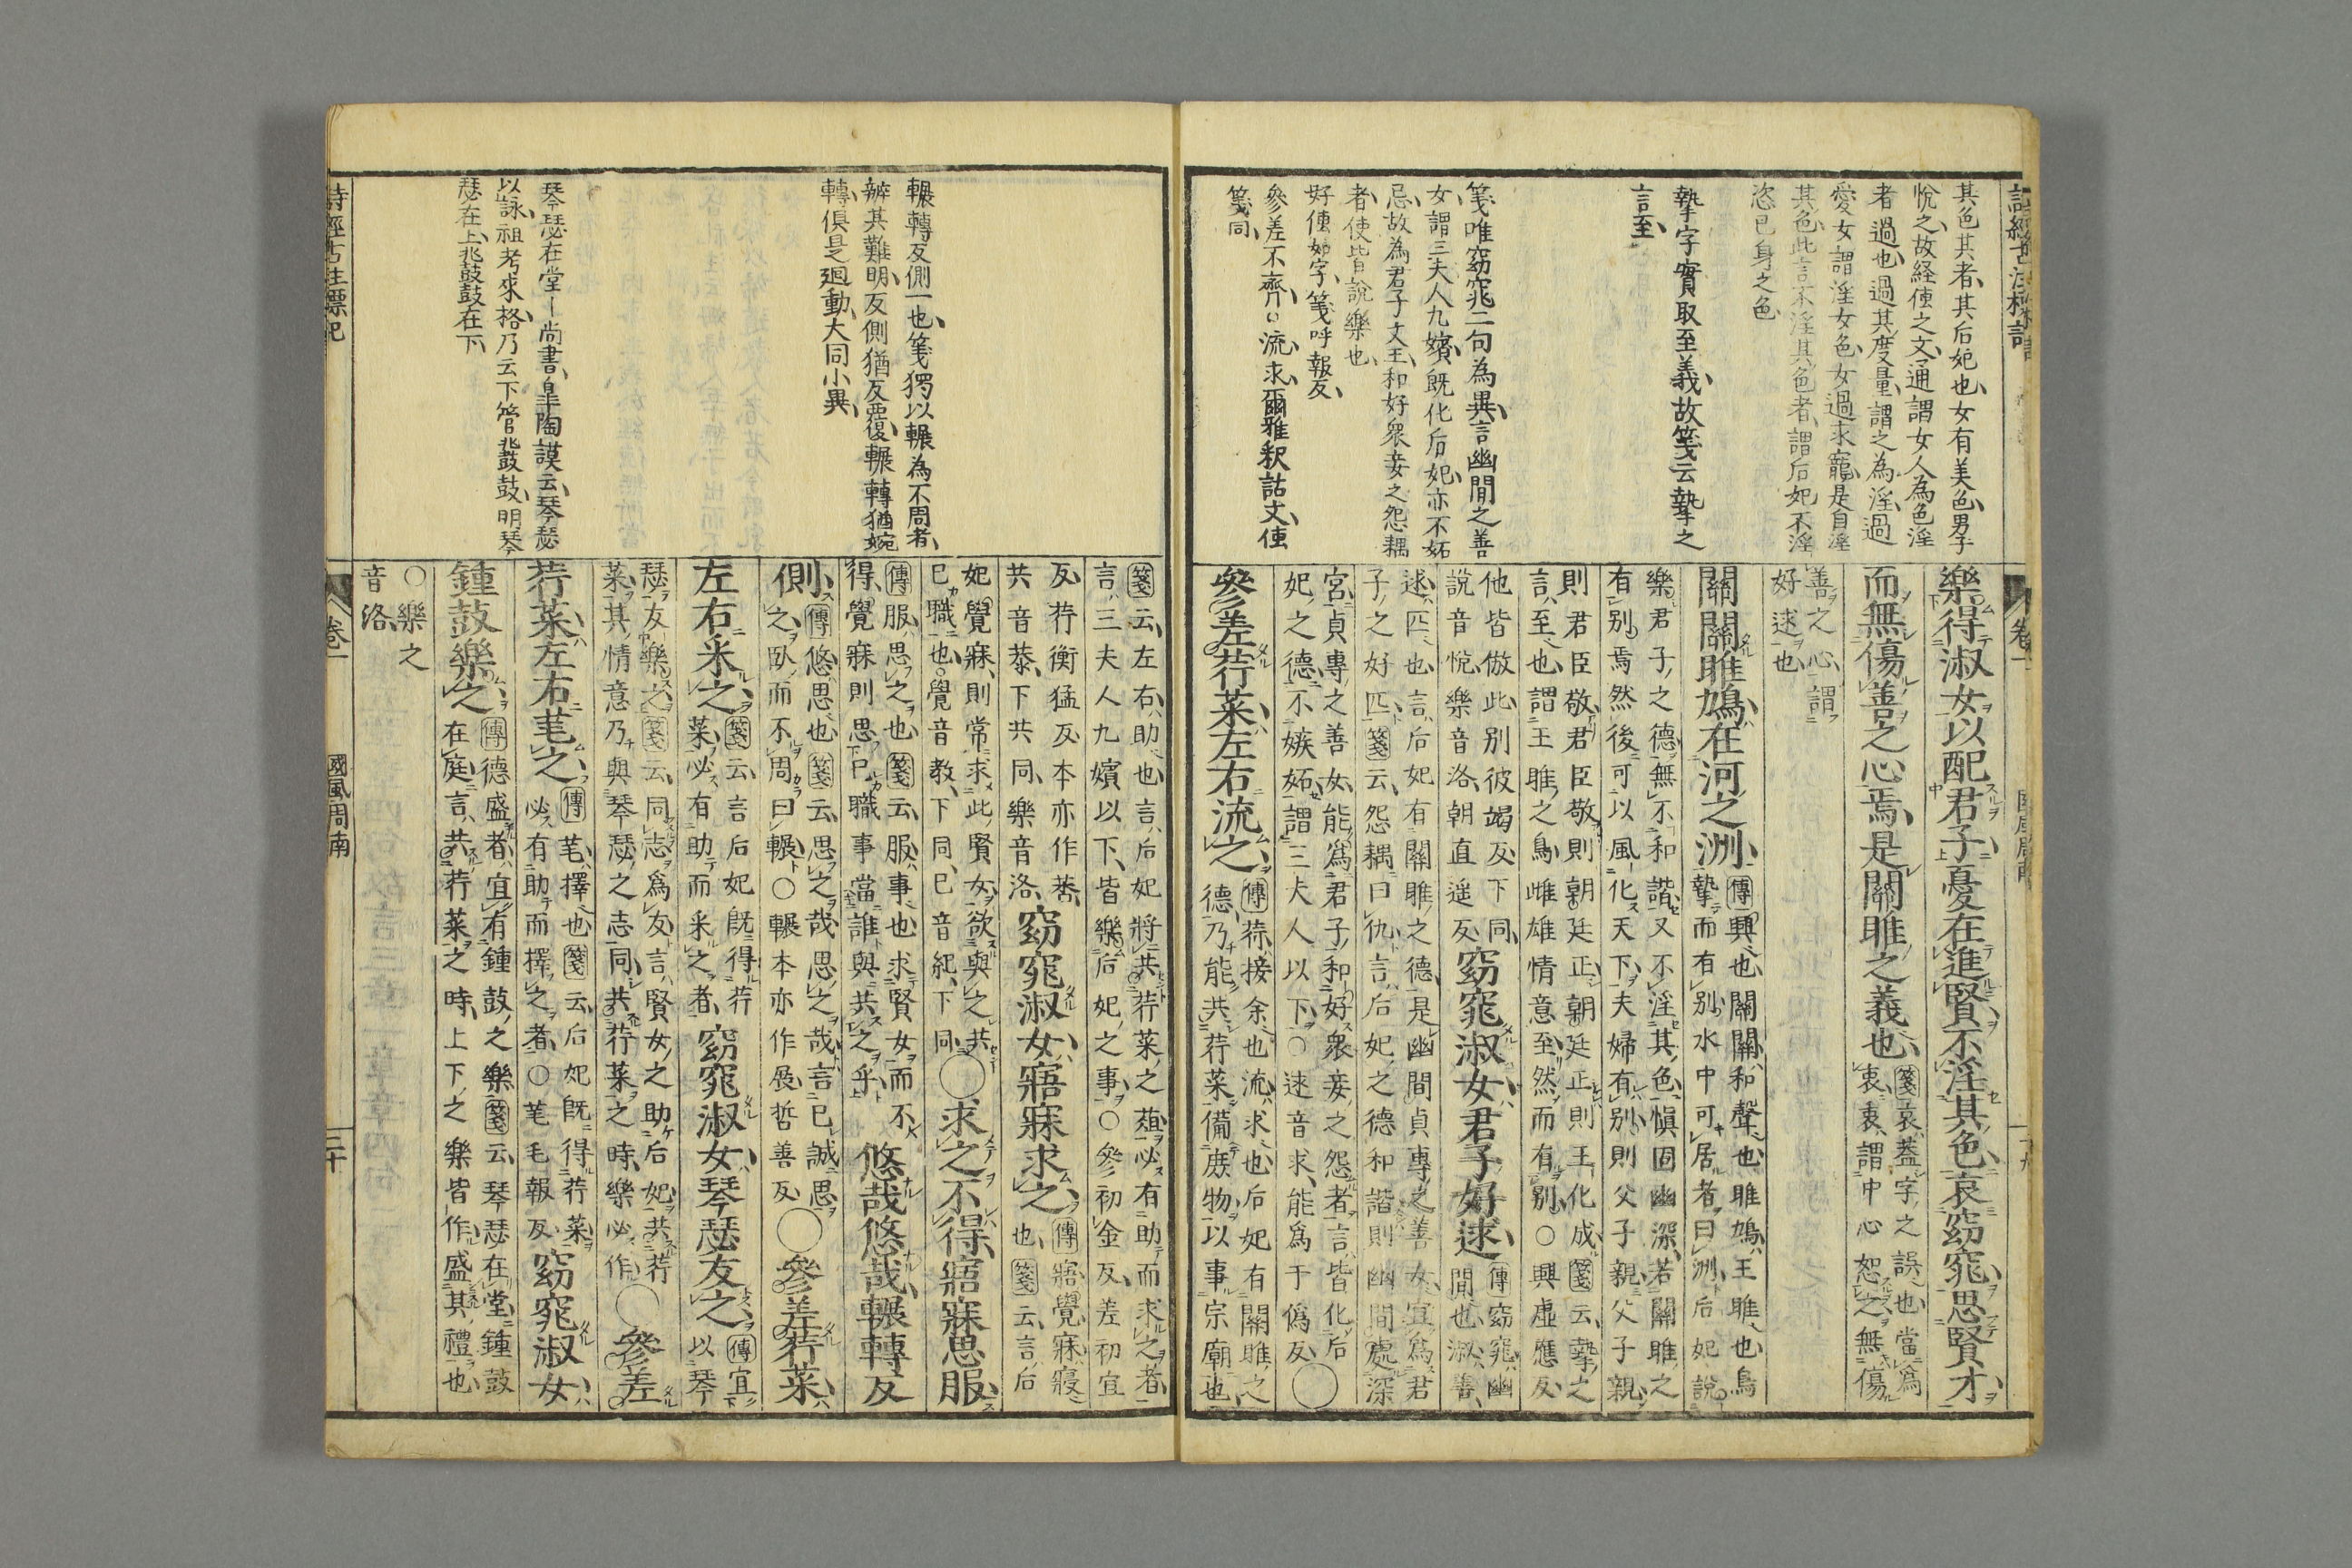 其色其者其后妃也女有美色男子
悅之故経傳之文通謂女人為色淫
者過也過其度量謂之為淫過
愛女謂淫女色女過求寵是自淫
其色此言不淫其色者謂后妃不淫
恣已身之色
摯字實取至義故箋云摯之
言至
箋唯窈窕二句為異言幽閒之善
女謂三夫人九嬪既化后妃亦不妬
忌故為君子文王和好衆妾之怨耦
者使皆說樂也
好傳如字箋呼報反
參差不齊○流求爾雅釈詁文傳
箋同
樂得淑女以配君子憂在進賢不淫其色哀窈窕思賢才
而無傷善之心焉是關雎之義也
箋哀蓋字之誤也當爲
衷衷謂中心恕之無傷
善之心謂
好逑也
關關雎鳩在河之洲
傳興也關關和聲也雎鳩王雎也鳥
摯而有別水中可居者曰洲后妃說
樂君子之德無不和諧又不淫其色慎固幽深若關雎之
有別焉然後可以風化天下夫婦有別則父子親父子親
則君臣敬君臣敬則朝廷正朝廷正則王化成箋云摯之
言至也謂王雎之鳥雌雄情意至然而有別○興虛應反
他皆倣此別彼竭反下同
說音悅樂音洛朝直遥反
窈窕淑女君子好逑
傳窈窕幽
閒也淑善
逑匹也言后妃有關雎之德是幽間貞專之善女宜爲君
子之好匹箋云怨耦曰仇言后妃之德和諧則幽間處深
宮貞專之善女能爲君子和好衆妾之怨者言皆化后
妃之德不嫉妬謂三夫人以下○逑音求能爲于偽反○
參差荇菜左右流之
傳荇接余也流求也后妃有關雎之
德乃能共荇菜備庶物以事宗廟也
箋云左右助也言后妃將共荇菜之葅必有助而求之者
言三夫人九嬪以下皆樂后妃之事○參初金反差初宜
反荇衡猛反本亦作莕
共音恭下共同樂音洛
窈窕淑女寤寐求之
傳寤覺寐寢
也箋云言后
妃覺寐則常求此賢女欲與之共
已職也○覺音教下同已音紀下同
○求之不得寤寐思服
傳服思之也箋云服事也求賢女而不
得覺寐則思已職事當誰與共之乎
悠哉悠哉輾轉反
側
傳悠思也箋云思之哉思之哉言已誠思
之臥而不周曰輾○輾本亦作展哲善反
○參差荇菜
左右采之
箋云言后妃既得荇
菜必有助而采之者
窈窕淑女琴瑟友之
傳宜
以琴
瑟友樂之箋云同志爲友言賢女之助后妃共荇
菜其情意乃與琴瑟之志同共荇菜之時樂必作
○參差
荇菜左右芼之
傳芼擇也箋云后妃既得荇菜
必有助而擇之者○芼毛報反
窈窕淑女
鍾鼓樂之
傳德盛者宜有鍾鼓之樂箋云琴瑟在堂鍾鼓
在庭言共荇菜之時上下之樂皆作盛其禮也
○樂之
音洛
輾轉反側一也箋獨以輾為不周者
辨其難明反側猶反覆輾轉猶婉
轉俱是廻動大同小異
琴瑟在堂ー尚書皐陶謨云琴瑟
以詠祖考來格乃云下管鼗鼓明琴
瑟在上鼗鼓在下
卷一
國風周南
二十